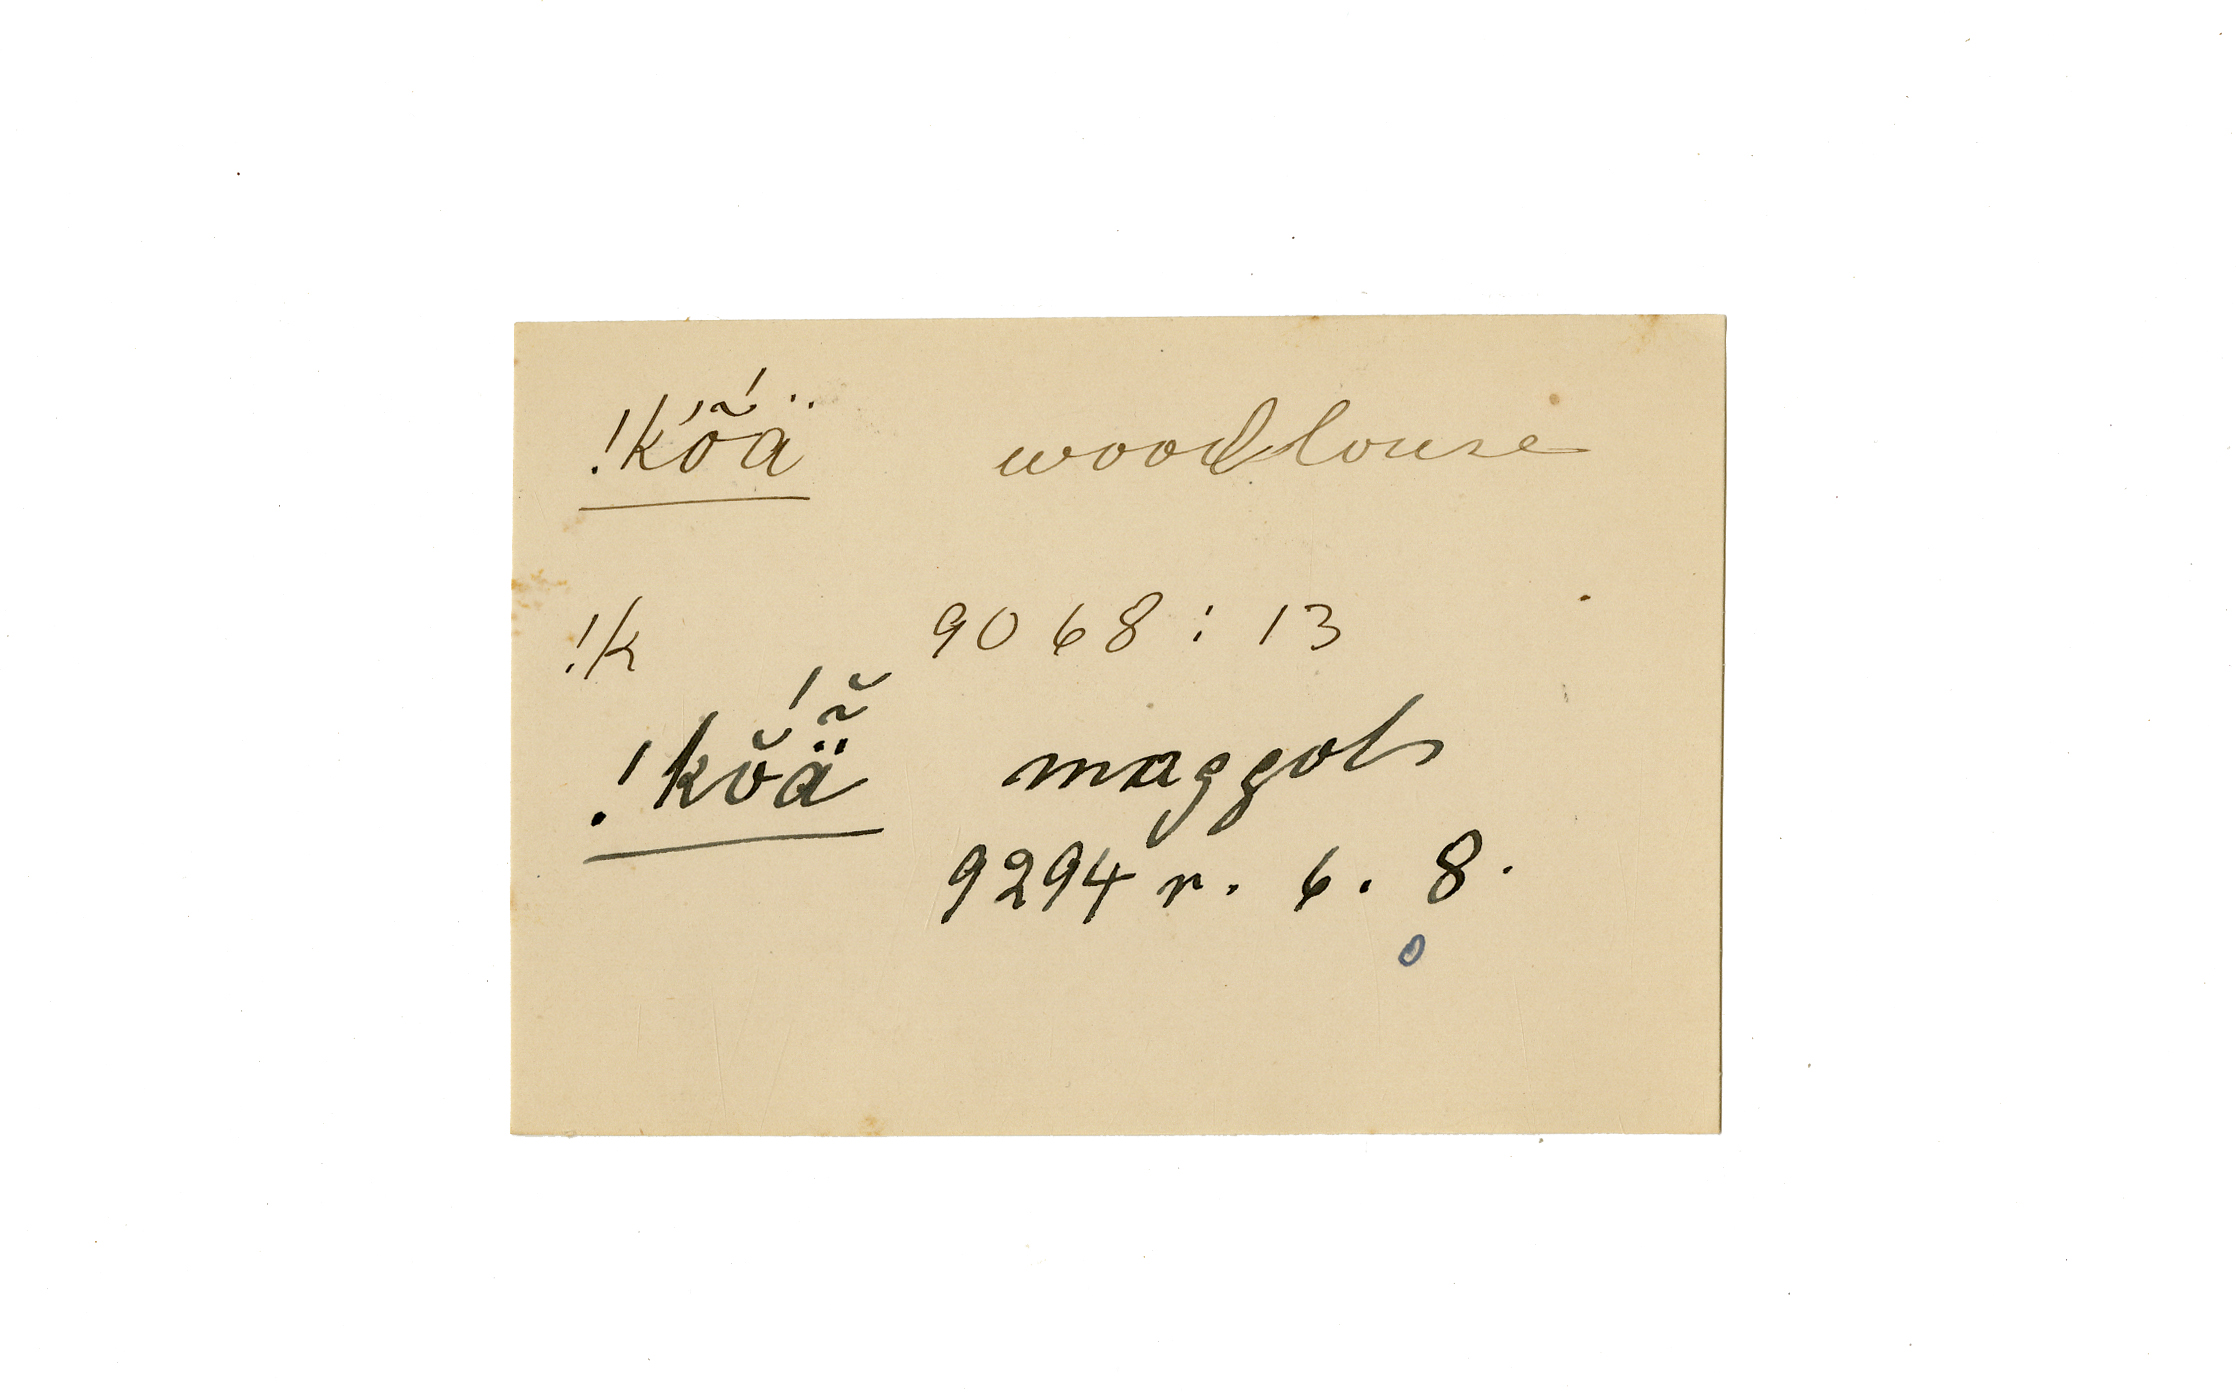 !kṍä woodlouse
!k 9068 : 13
!kŏ́ä̃̆ maggots
9294 r. 6. 8.
o